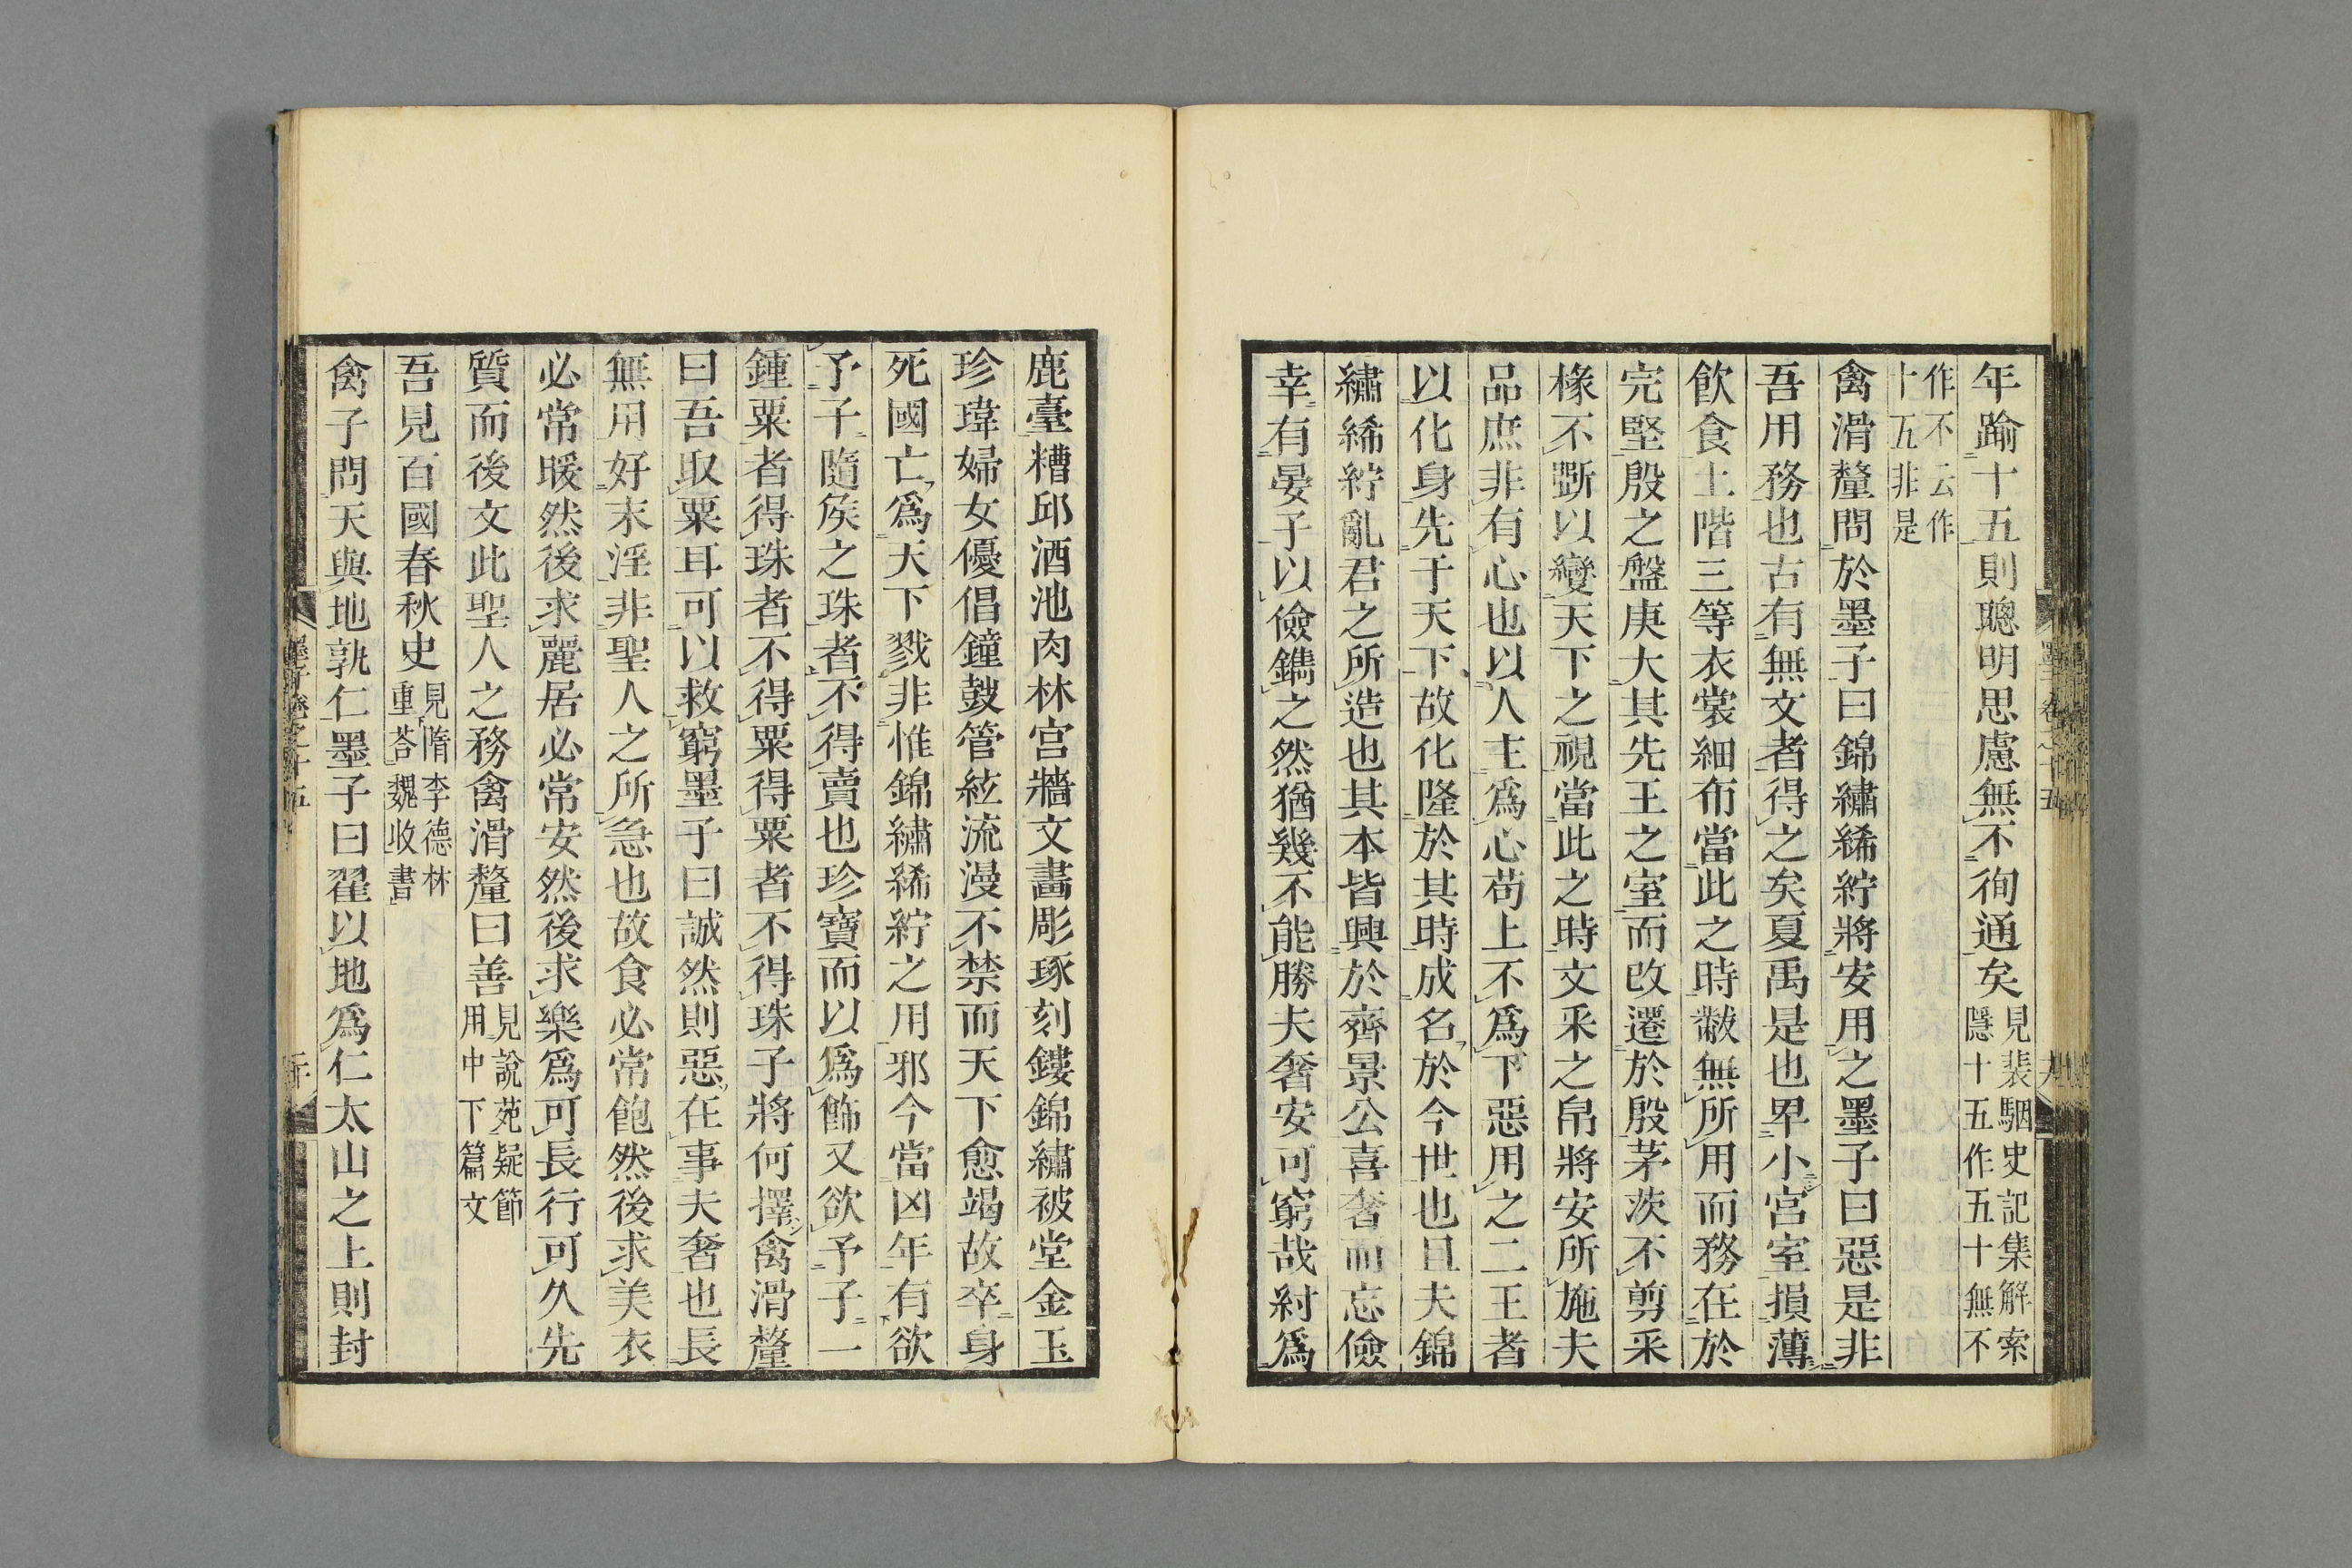 年踰十五則聰明思慮無不徇通矣見裴駰史記集解索隱十五作五十無不
作不云作十五非是
禽滑釐問於墨子曰錦繡絺紵將安用之墨子曰惡是非
吾用務也古有無文者得之矣夏禹是也卑小宮室損薄
飲食土階三等衣裳細布當此之時黻無所用而務在於
完堅殷之盤庚大其先王之室而改遷於殷茅茨不剪采
椽不斲以變天下之視當此之時文采之帛將安所施夫
品庶非有心也以人主爲心苟上不爲下惡用之二王者
以化身先于天下故化隆於其時成名於今世也且夫錦
繡絺紵亂君之所造也其本皆興於齊景公喜奢而忘儉
幸有晏子以儉鐫之然猶幾不能勝夫奢安可窮哉紂爲
鹿臺糟邱酒池肉林宮牆文畫彫琢刻鏤錦繡被堂金玉
珍瑋婦女優倡鐘鼓管絃流漫不禁而天下愈竭故卒身
死國亡爲天下戮非惟錦繡絺紵之用邪今當凶年有欲
予子隨矦之珠者不得賣也珍寶而以爲飾又欲予子一
鍾粟者得珠者不得粟得粟者不得珠子將何擇禽滑釐
曰吾取粟耳可以救窮墨子曰誠然則惡在事夫奢也長
無用好末淫非聖人之所急也故食必常飽然後求美衣
必常暖然後求麗居必常安然後求樂爲可長行可久先
質而後文此聖人之務禽滑釐曰善見說苑疑節用中下篇文
吾見百國春秋史見隋李德林重荅魏收書
禽子問天與地孰仁墨子曰翟以地爲仁太山之上則封